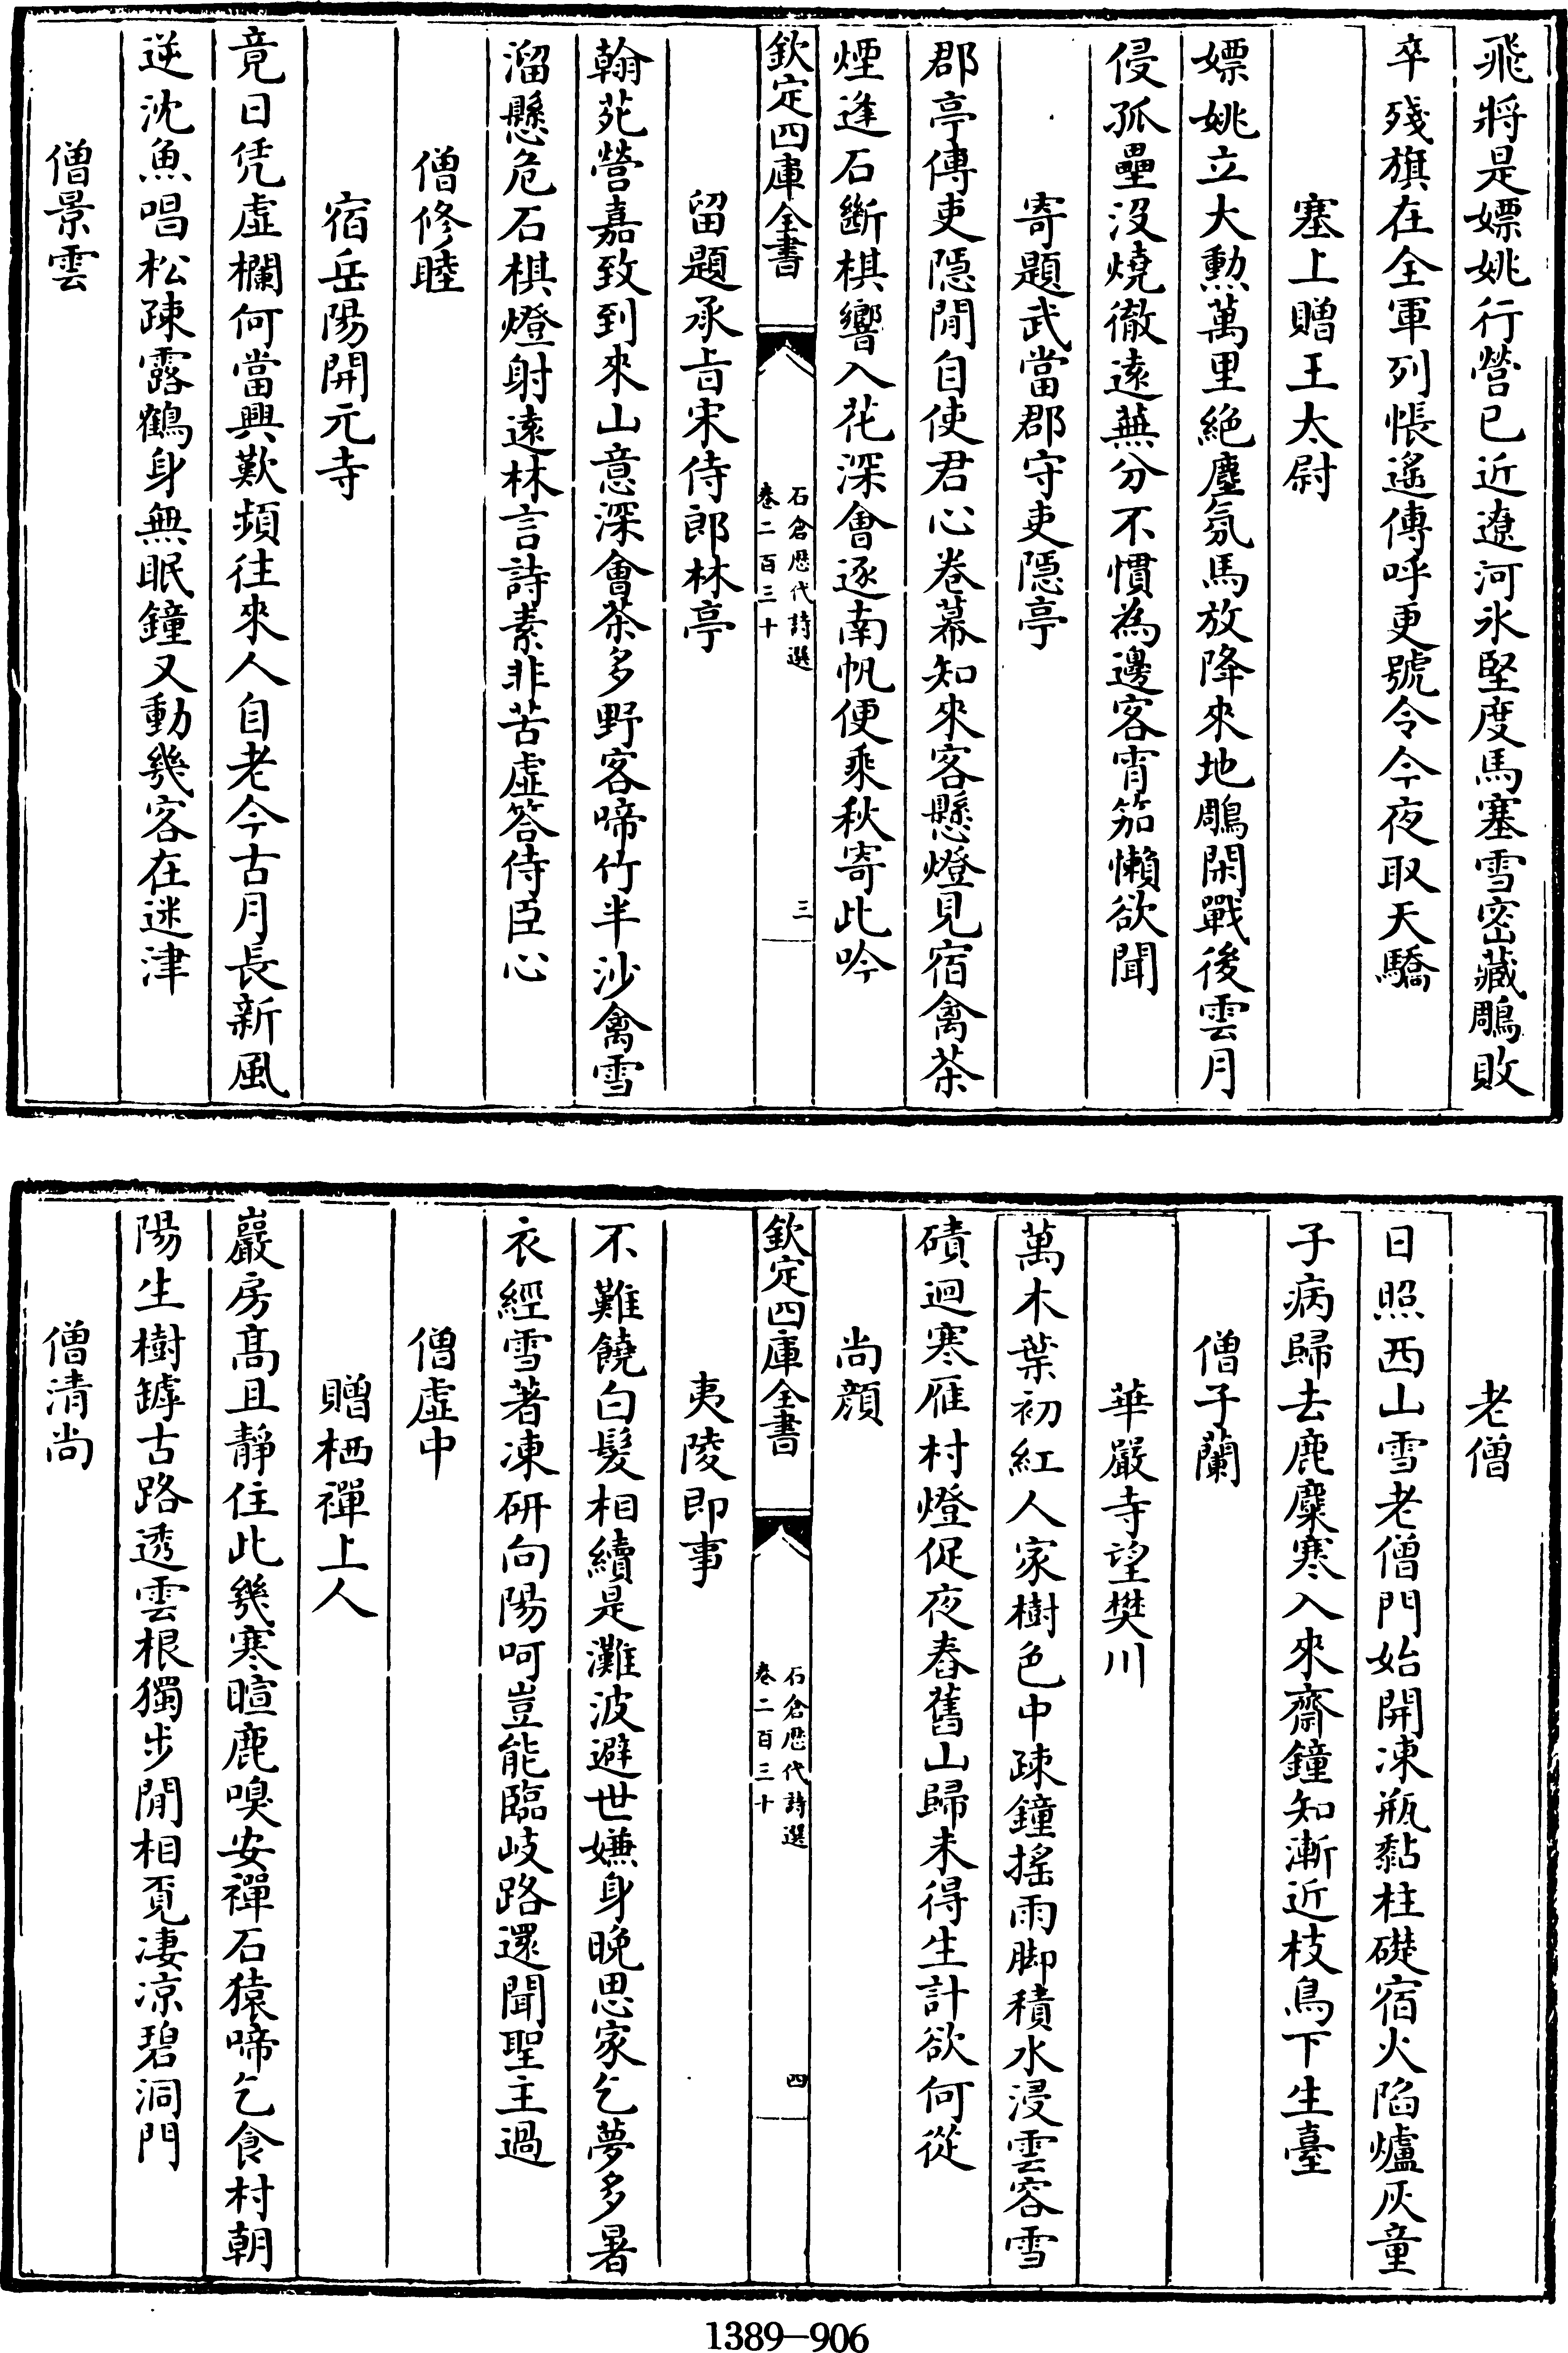 飛將是嫖姚行營已近遼河氷堅度馬塞雪密藏鵰敗
卒殘旗在全軍列悵遙傳呼更號令今夜取天驕
塞上贈王太尉
嫖姚立大勲萬里絶塵氛馬放降來地鵰閑戰後雲月
侵孤壘沒燒徹遠蕪分不慣為邊客宵笳懶欲聞
寄題武當郡守吏隠亭
郡亭傳吏隠閒自使君心卷幕知來客懸燈見宿禽茶
煙逢石斷棋響入花深會逐南帆便乘秋寄此吟
欽定四庫全書
石倉歴代詩選
卷二百三十
三
留題承㫖宋侍郎林亭
翰苑營嘉致到來山意深會茶多野客啼竹半沙禽雪
溜懸危石棋燈射遠林言詩素非苦虛答侍臣心
僧修睦
宿岳陽開元寺
竟日凭虛欄何當興歎頻往來人自老今古月長新風
逆沈魚唱松疎露鶴身無眠鐘又動幾客在迷津
僧景雲
老僧
日照西山雪老僧門始開凍瓶黏柱礎宿火陷爐灰童
子病歸去鹿麋寒入來齋鐘知漸近枝鳥下生臺
僧子蘭
華嚴寺望樊川
萬木葉初紅人家樹色中疎鐘搖雨脚積水浸雲容雪
磧迴寒雁村燈促夜舂舊山歸未得生計欲何從
尚顔
欽定四庫全書
石倉歴代詩選
卷二百三十
四
夷陵即事
不難饒白髮相續是灘波避世嫌身晚思家乞夢多暑
衣經雪著凍研向陽呵豈能臨岐路還聞聖主過
僧虛中
贈栖禪上人
巖房髙且靜住此幾寒暄鹿嗅安禪石猿啼乞食村朝
陽生樹罅古路透雲根獨步閒相覓凄凉碧洞門
僧清尚
1389-906